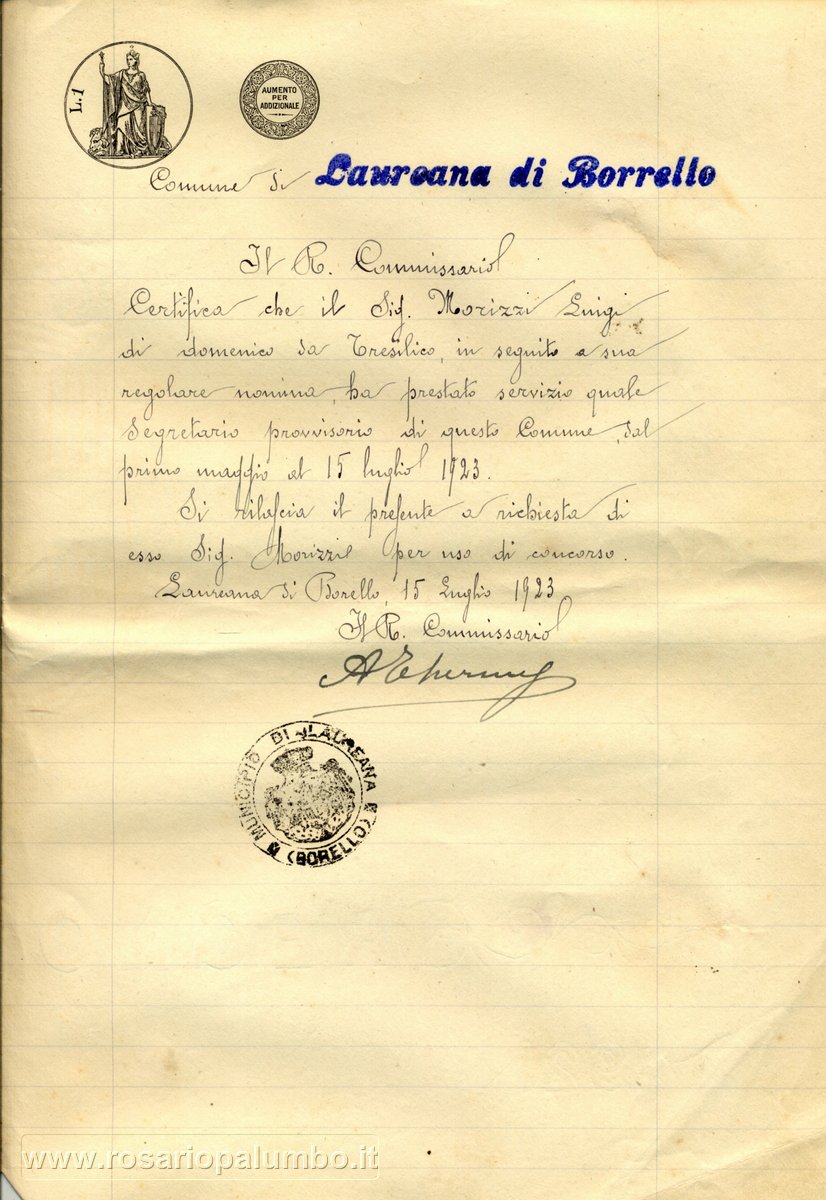 L. 1
AUMENTO
PER
ADDIZIONALE
Comune di Laureana di Borrello
Il R. Commissario
Certifica che il Sig. Morizzi Luigi
di domenico da Tresilico, in seguito a sua
regolare nomina, ha prestato servizio quale
Segretario provvisorio di questo Comune, dal
primo maggio al 15 luglio 1923.
Si rilascia il presente a richiesta di
esso Sig. Morizzi per uso di concorso.
Laureana di Borello, 15 Luglio 1923
Il R. Commissario
MUNICIPIO DI LAUREANA
(BORELLO)
www.rosariopalumbo.it